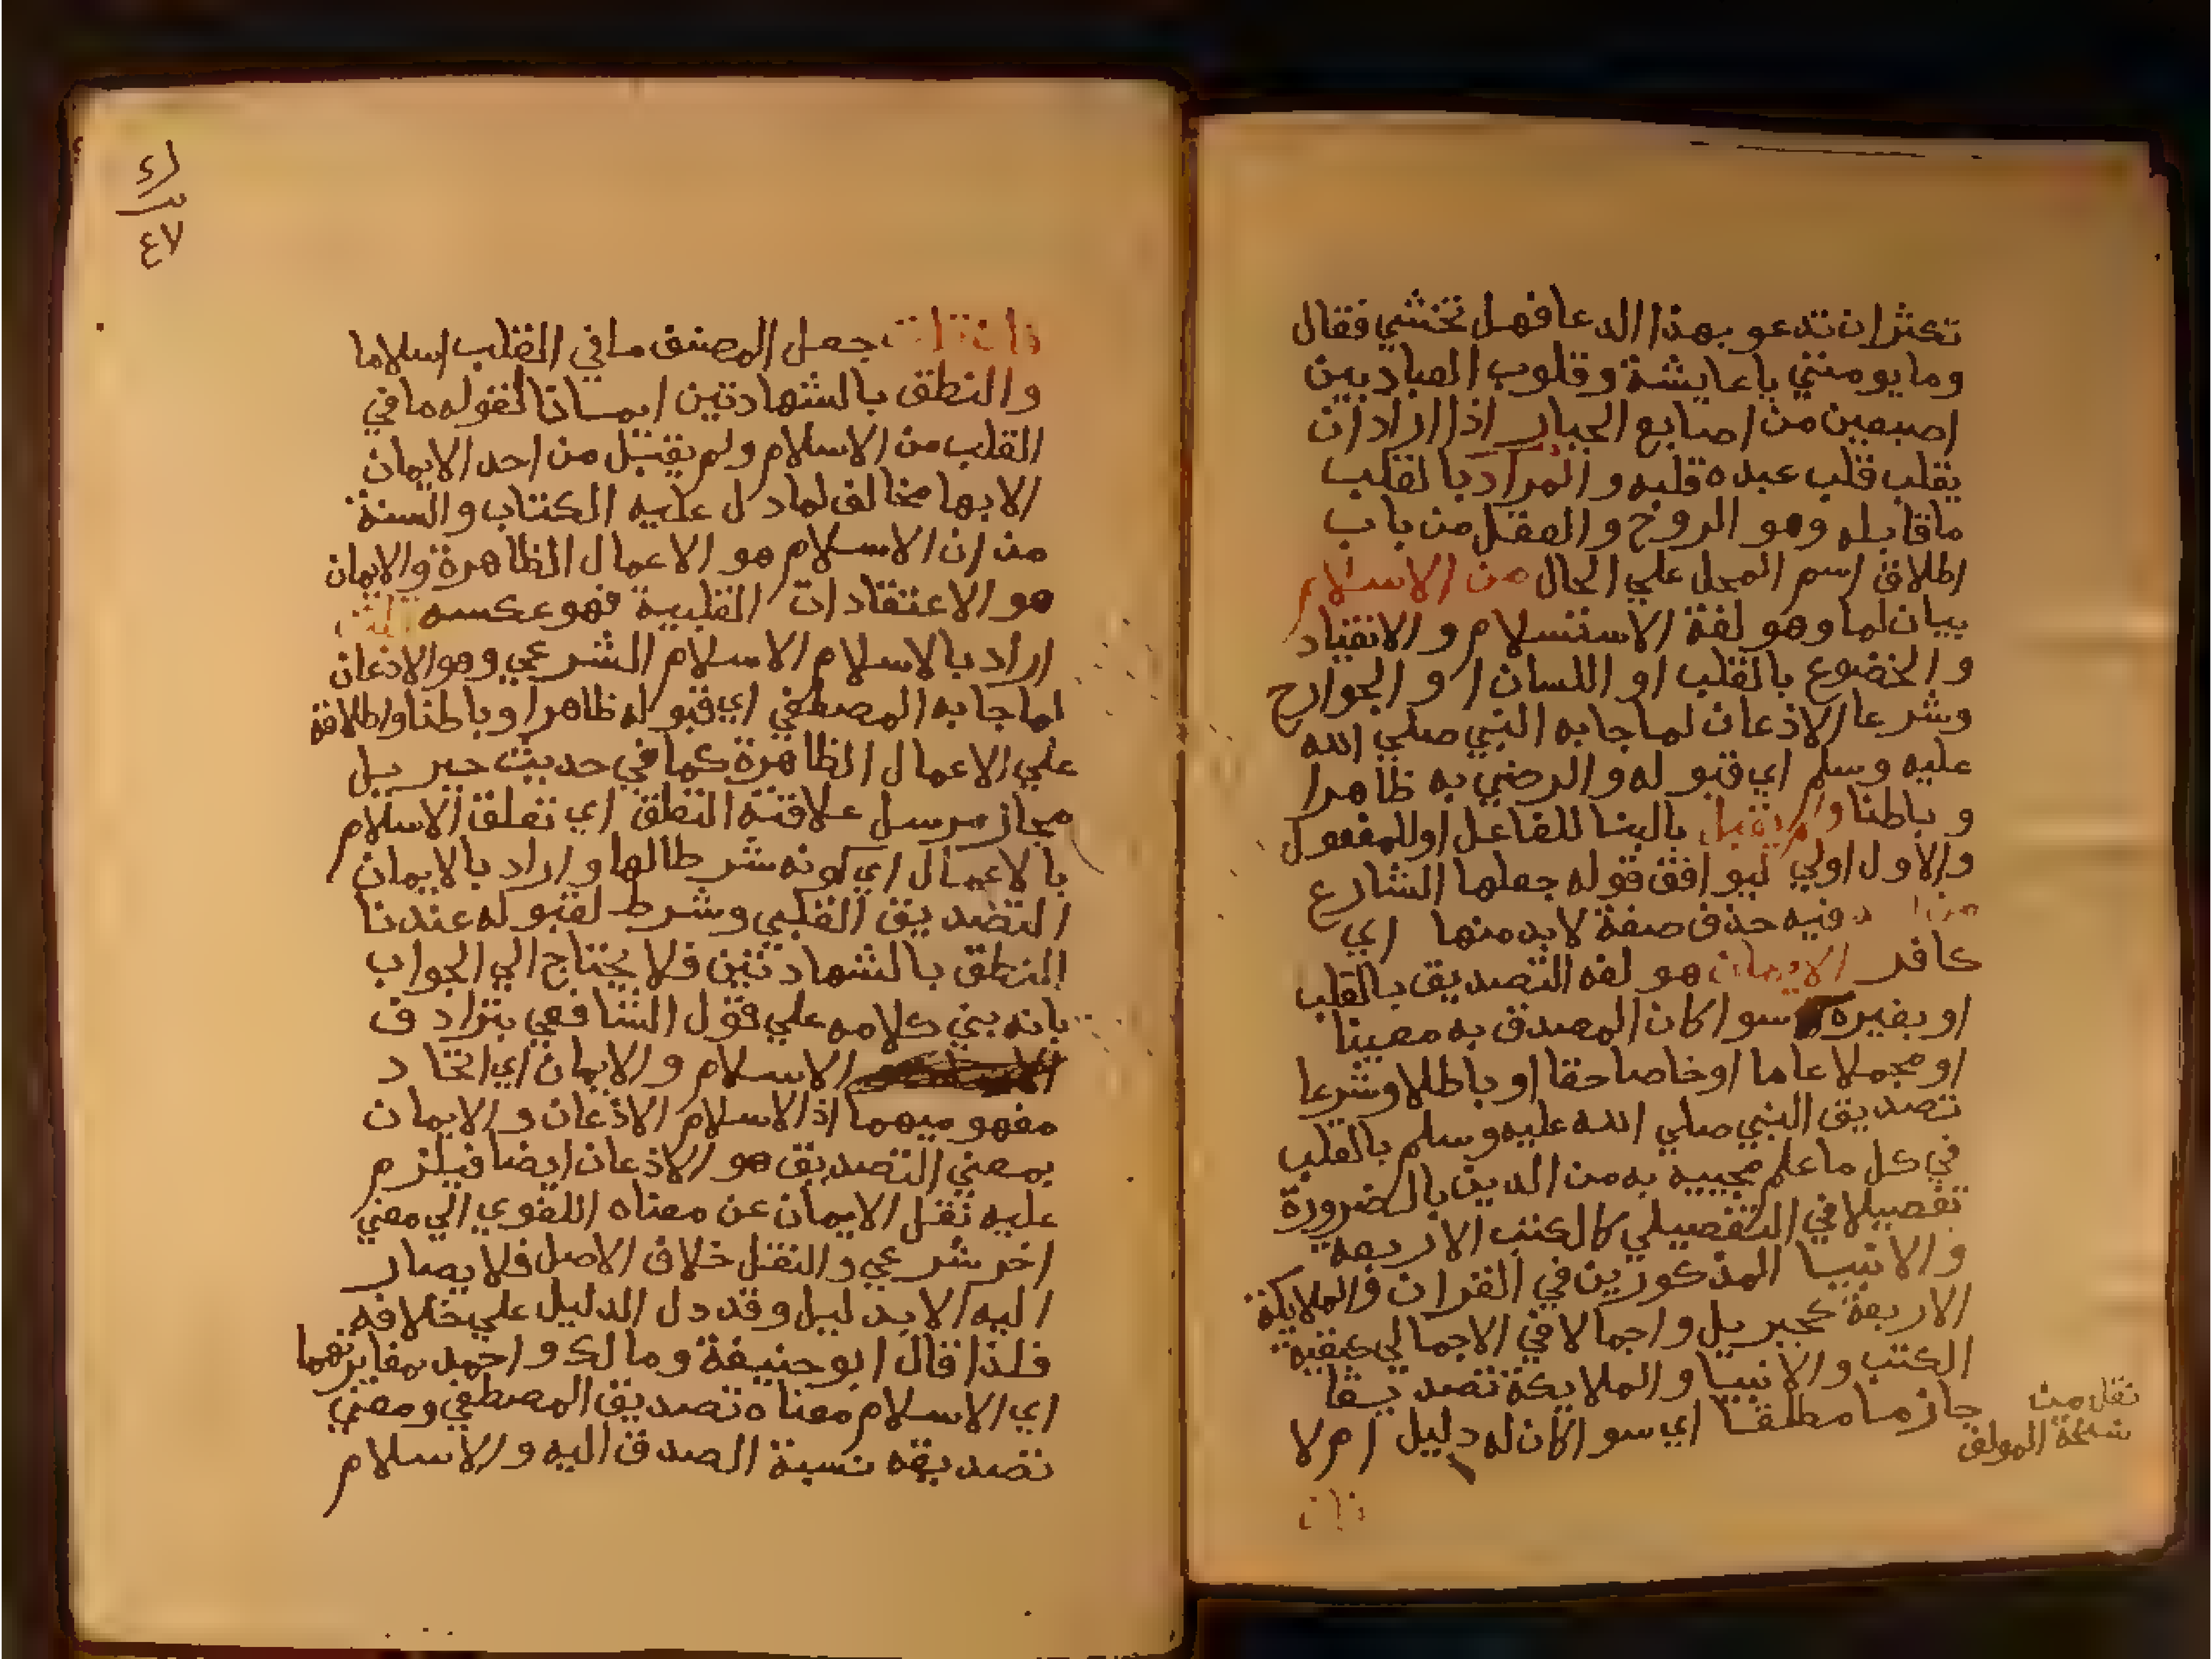 تكثر ان تدعو بهذا الدعا فهل تخشي فقال
وما يومنني يا عايشة وقلوب العباد بين
اصبعين من اصابع الجبار اذا اراد ان
يقلب قلب عبده قلبه والمراد بالقلب
ما قابله وهو الروح والعقل من باب
اطلاق اسم المحل علي الحال من الاسلام
بيان لما وهو لغة الاستسلام والانقياد
والخضوع بالقلب او اللسان او الجوارح
وشرعا الاذعان لما جا به النبي صلي الله
عليه وسلم اي قبوله والرضي به ظاهرا
وباطنا ولم يقبل بالبنا للفاعل او للمفعول
والاول اولي ليوافق قوله جعلها الشارع
وفيه حذف صفة لابد منها اي
كافر الايمان هو لغه التصديق بالقلب
او بغيره سوا كان المصدق به معينا
او مجملا عاما او خاصا حقا او باطلا وشرعا
تصديق النبي صلي الله عليه وسلم بالقلب
في كل ما علم مجييه به من الدين بالضرورة
تفصيلا في التفصيلي كالكتب الاربعة
والانبيا المذكورين في القران والملايكة
الاربعة كجبريل واجمالا في الاجمالي كبقية
الكتب والانبيا والملايكة تصديقا
جازما مطلقا اي سوا كان له دليل ام لا
نقل من
نسخة المولف
فان
٤٧
جعل المصنف ما في القلب اسلاما
والنطق بالشهادتين ايمانا لقوله ما في
القلب من الاسلام ولم يقبل من احد الايمان
الا بها مخالف لما دل عليه الكتاب والسنة
من ان الاسلام هو الاعمال الظاهرة والايمان
هو الاعتقادات القلبية فهو عكسه
اراد بالاسلام الاسلام الشرعي وهو الاذعان
لما جا به المصطفي اي قبوله ظاهرا وباطنا واطلاقه
علي الاعمال الظاهرة كما في حديث جبريل
مجاز مرسل علاقته التعلق اي تعلق الاسلام
بالاعمال اي كونه شرطا لها واراد بالايمان
التصديق القلبي وشرط لقبوله عندنا
النطق بالشهادتين فلا يحتاج الي الجواب
بانه بني كلامه علي قول الشافعي بترادف
الاسلام والايمان اي اتحاد
مفهوميهما اذ الاسلام الاذعان والايمان
بمعني التصديق هو الاذعان ايضا فيلزم
عليه نقل الايمان عن معناه اللغوي الي معني
اخر شرعي والنقل خلاف الاصل فلا يصار
اليه الا بدليل وقد دل الدليل علي خلافه
فلذا قال ابو حنيفة ومالك واحمد بمغايرتهما
اي الاسلام معناه تصديق المصطفي ومعني
تصديقه نسبة الصدق اليه والاسلام